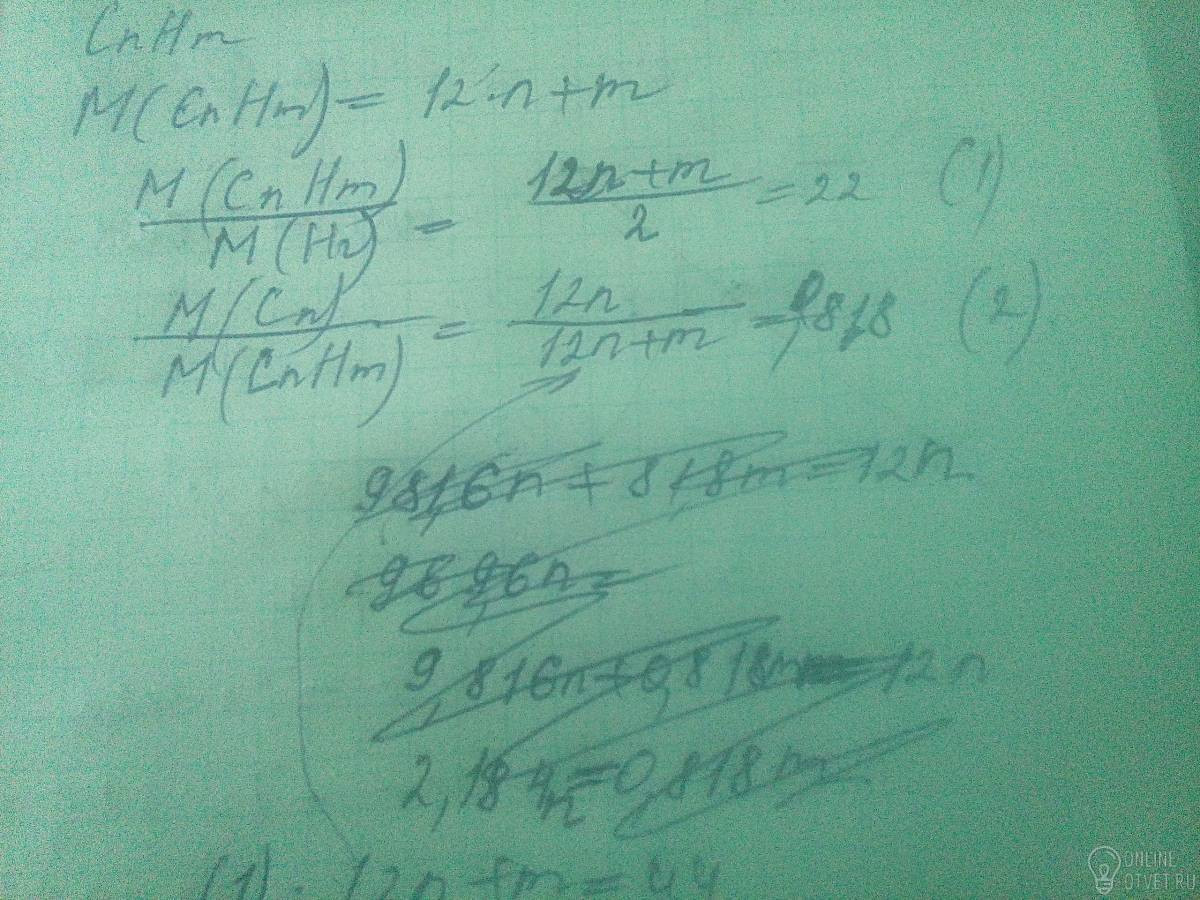 CnHm
M(CnHm) = 12·n+m
M(CnHm) / M(H2) = 12n+m / 2 = 22 (1)
M(Cn) / M(CnHm) = 12n / 12n+m = 0,818 (2)
9816n + 818m = 12n
9696n =
9,816n+0,818m = 12n
2,184n = 0,818m
(1). 12n+m = 44
ONLINE
OTVET.RU